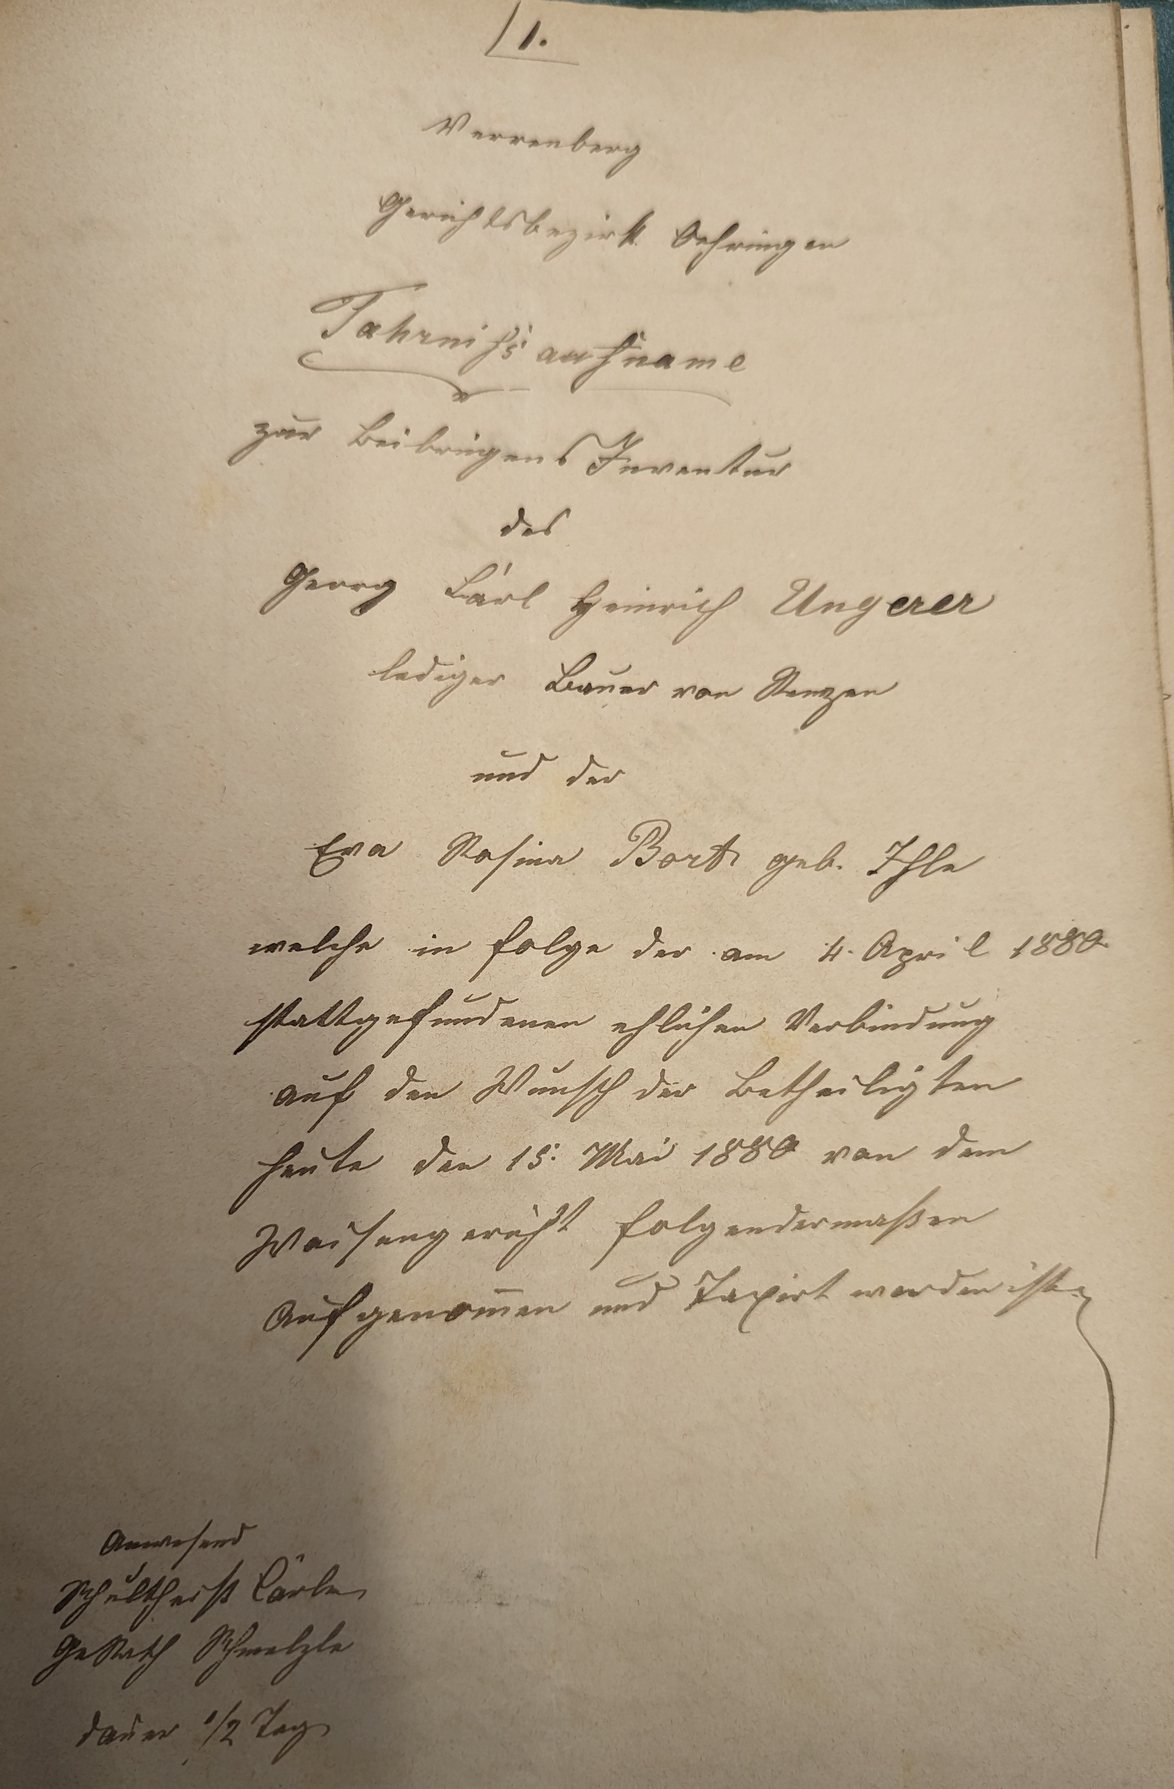 1.
Verrenberg
Gerichtsbezirk Oehringen
Fahrnißaufname
zur Beibringens Inventur
des
Georg Carl Heinrich Ungerer
lediger Bauer von Renzen
und der
Eva Rosina Bort geb. Ihle
welche in folge der am 4. April 1880
stattgefundenen ehlichen Verbindung
auf den Wunsch der Betheiligten
heute den 15. Mai 1880 von dem
Waisengericht folgendermaßen
Aufgenom̅en und Taxirt worden ist.
Anwesend
Schultheiß Carle
GeRath Schmelzle
Dauer 1/2 Tag